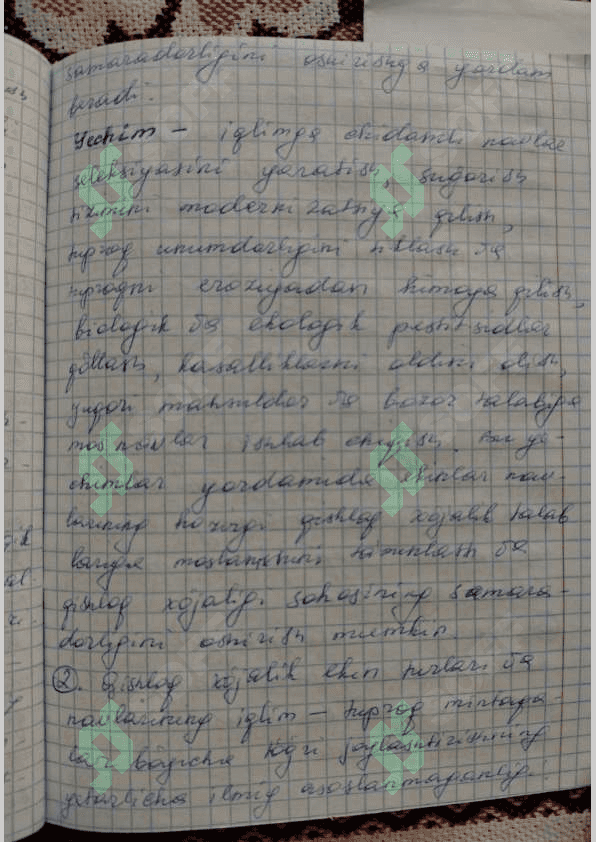 samaradorligini oshirishga yordam
beradi.
Yechim – iqlimga chidamli navlar
seleksiyasini yaratish, sug'orish
tizimini modernizatsiya qilish,
tuproq unumdorligini tiklash va
tuproqni eroziyadan himoya qilish,
biologik va ekologik pestitsidlar
qo'llash, kasalliklarni oldini olish,
yuqori mahsuldor va bozor talabiga
mos navlar ishlab chiqish. Bu ye-
chimlar yordamida ekinlar nav-
larining hozirgi qishloq xo'jalik talab
lariga moslanishini ta'minlash va
qishloq xo'jaligi sohasining samara-
dorligini oshirish mumkin.
2. Qishloq xo'jalik ekin turlari va
navlarining iqlim – tuproq mintaqa-
lari bo'yicha to'g'ri joylashtirishning
yetarlicha ilmiy asoslanmaganligi.